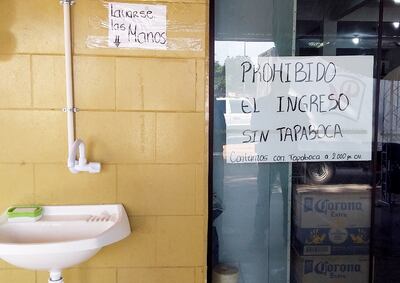 Lavarse
las
Manos
PROHIBIDO
EL INGRESO
SIN TAPABOCA
Contamos con Tapaboca a 2.000
Corona
Extra
Corona